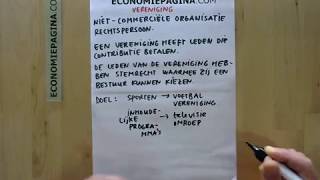 ECONOMIEPAGINA.COM
VERENIGING
NIET-COMMERCIËLE ORGANISATIE
RECHTSPERSOON.
EEN VERENIGING HEEFT LEDEN DIE
CONTRIBUTIE BETALEN.
DE LEDEN VAN DE VERENIGING HEB-
BEN STEMRECHT WAARMEE ZIJ EEN
BESTUUR KUNNEN KIEZEN
DOEL: SPORTEN → VOETBAL
VERENIGING
INHOUDE- → TELEVISIE
LIJKE OMROEP
PROGRA-
MMA'S
ECONOMIEPAGINA.COM